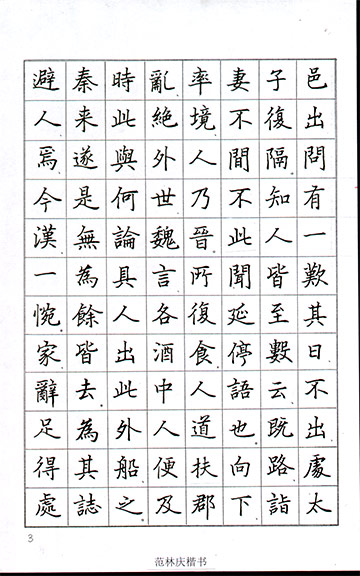 避秦時亂率妻子邑
人来此絕境不復出
焉遂與外人間隔問
今是何世乃不知有
漢無論魏晉此人一
一為具言所聞皆歎
惋餘人各復延至其
家皆出酒食停數日
辭去此中人語云不
足為外人道也既出
得其船便扶向路處
處誌之及郡下詣太
3
范林庆楷书